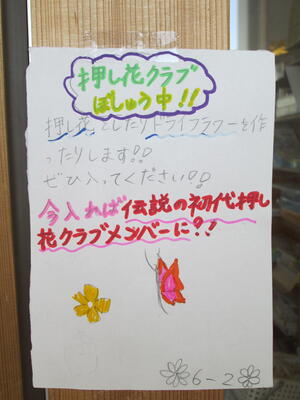 押し花クラブ
ぼしゅう中!!
押し花をしたりドライフラワーを作
ったりします!!
ぜひ入ってください!!
今入れば伝説の初代押し
花クラブメンバーに?!
6-2